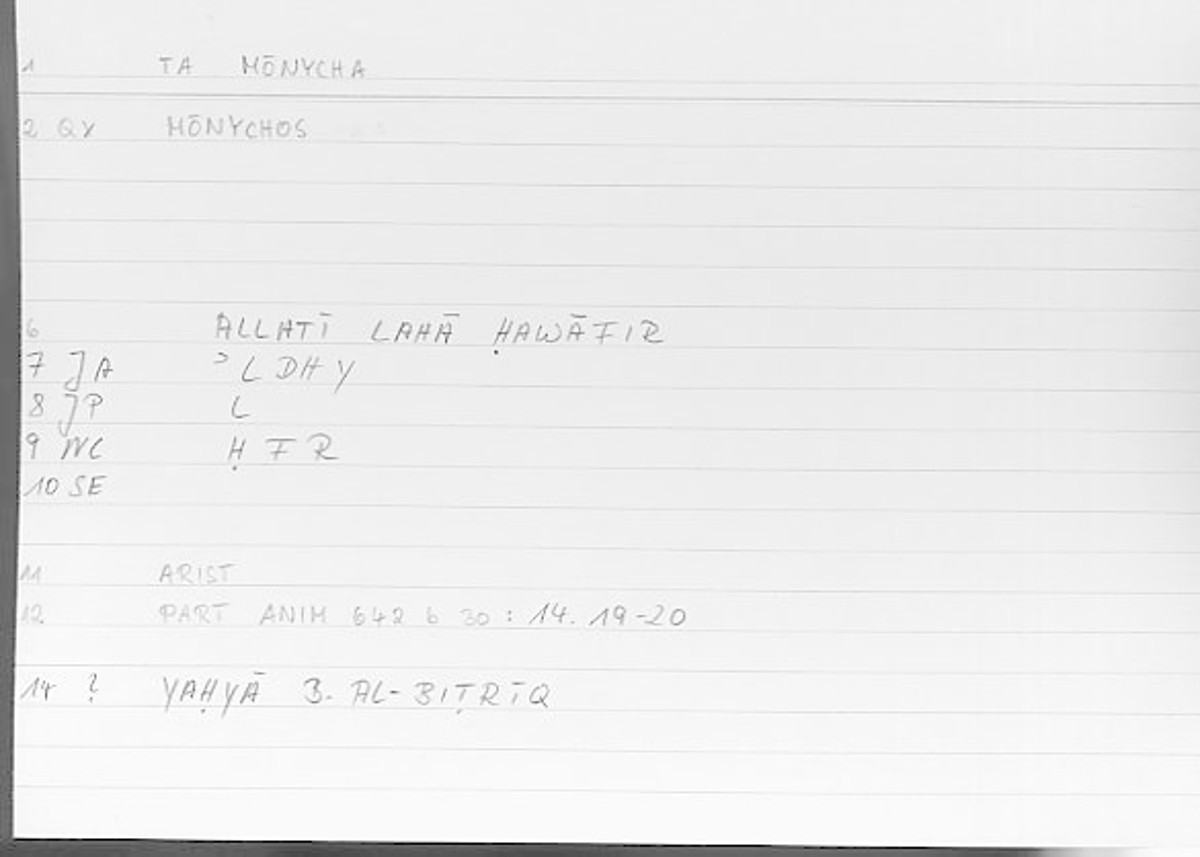 1 TA MŌNYCHA
2 QY MŌNYCHOS
6 ALLATĪ LAHĀ ḤAWĀFIR
7 JA ʾLDHY
8 JP L
9 NC ḤFR
10 SE
11 ARIST
12 PART ANIM 642 b 30 : 14. 19-20
14 ? YAḤYĀ B. AL-BIṬRĪQ